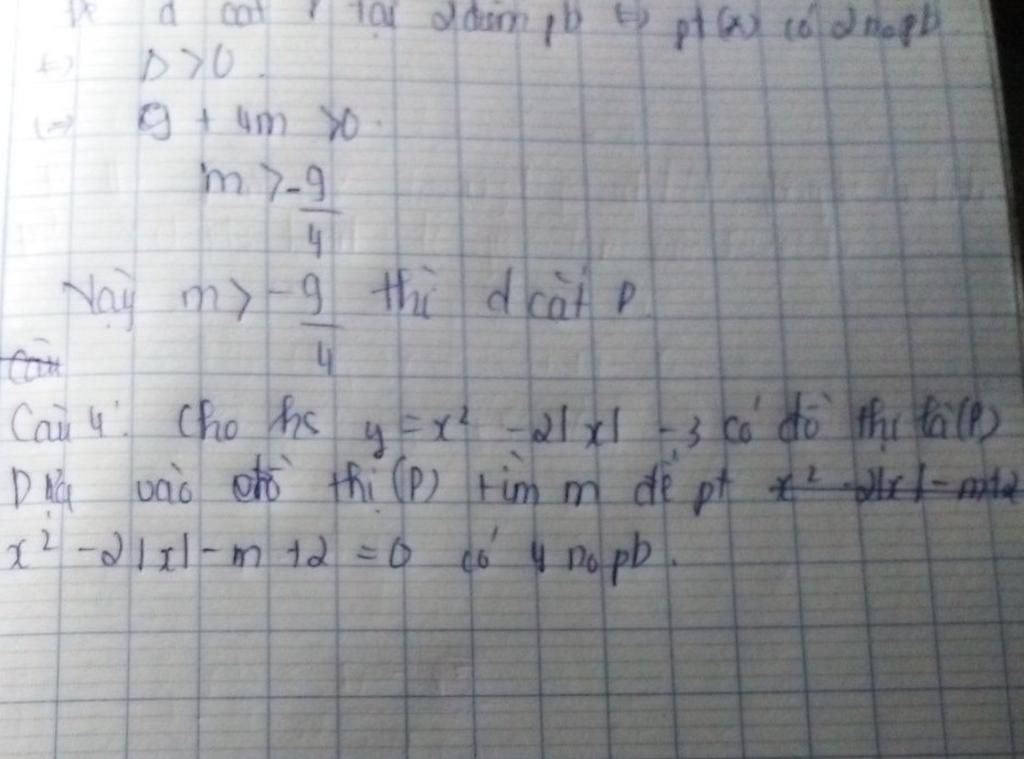 d cắt P tại 2 điểm pb <=> pt(x) có 2 no pb
<=> Δ>0.
<=> 9 + 4m >0.
m >-9/4
Vậy m>-9/4 thì d cắt P.
Câu
Câu 4: Cho hs y = x² -2|x| -3 có đồ thị là(P)
Dựa vào đồ thị (P) tìm m để pt x² -2|x| - m+2
x² -2|x| - m +2 =0 có 4 no pb.